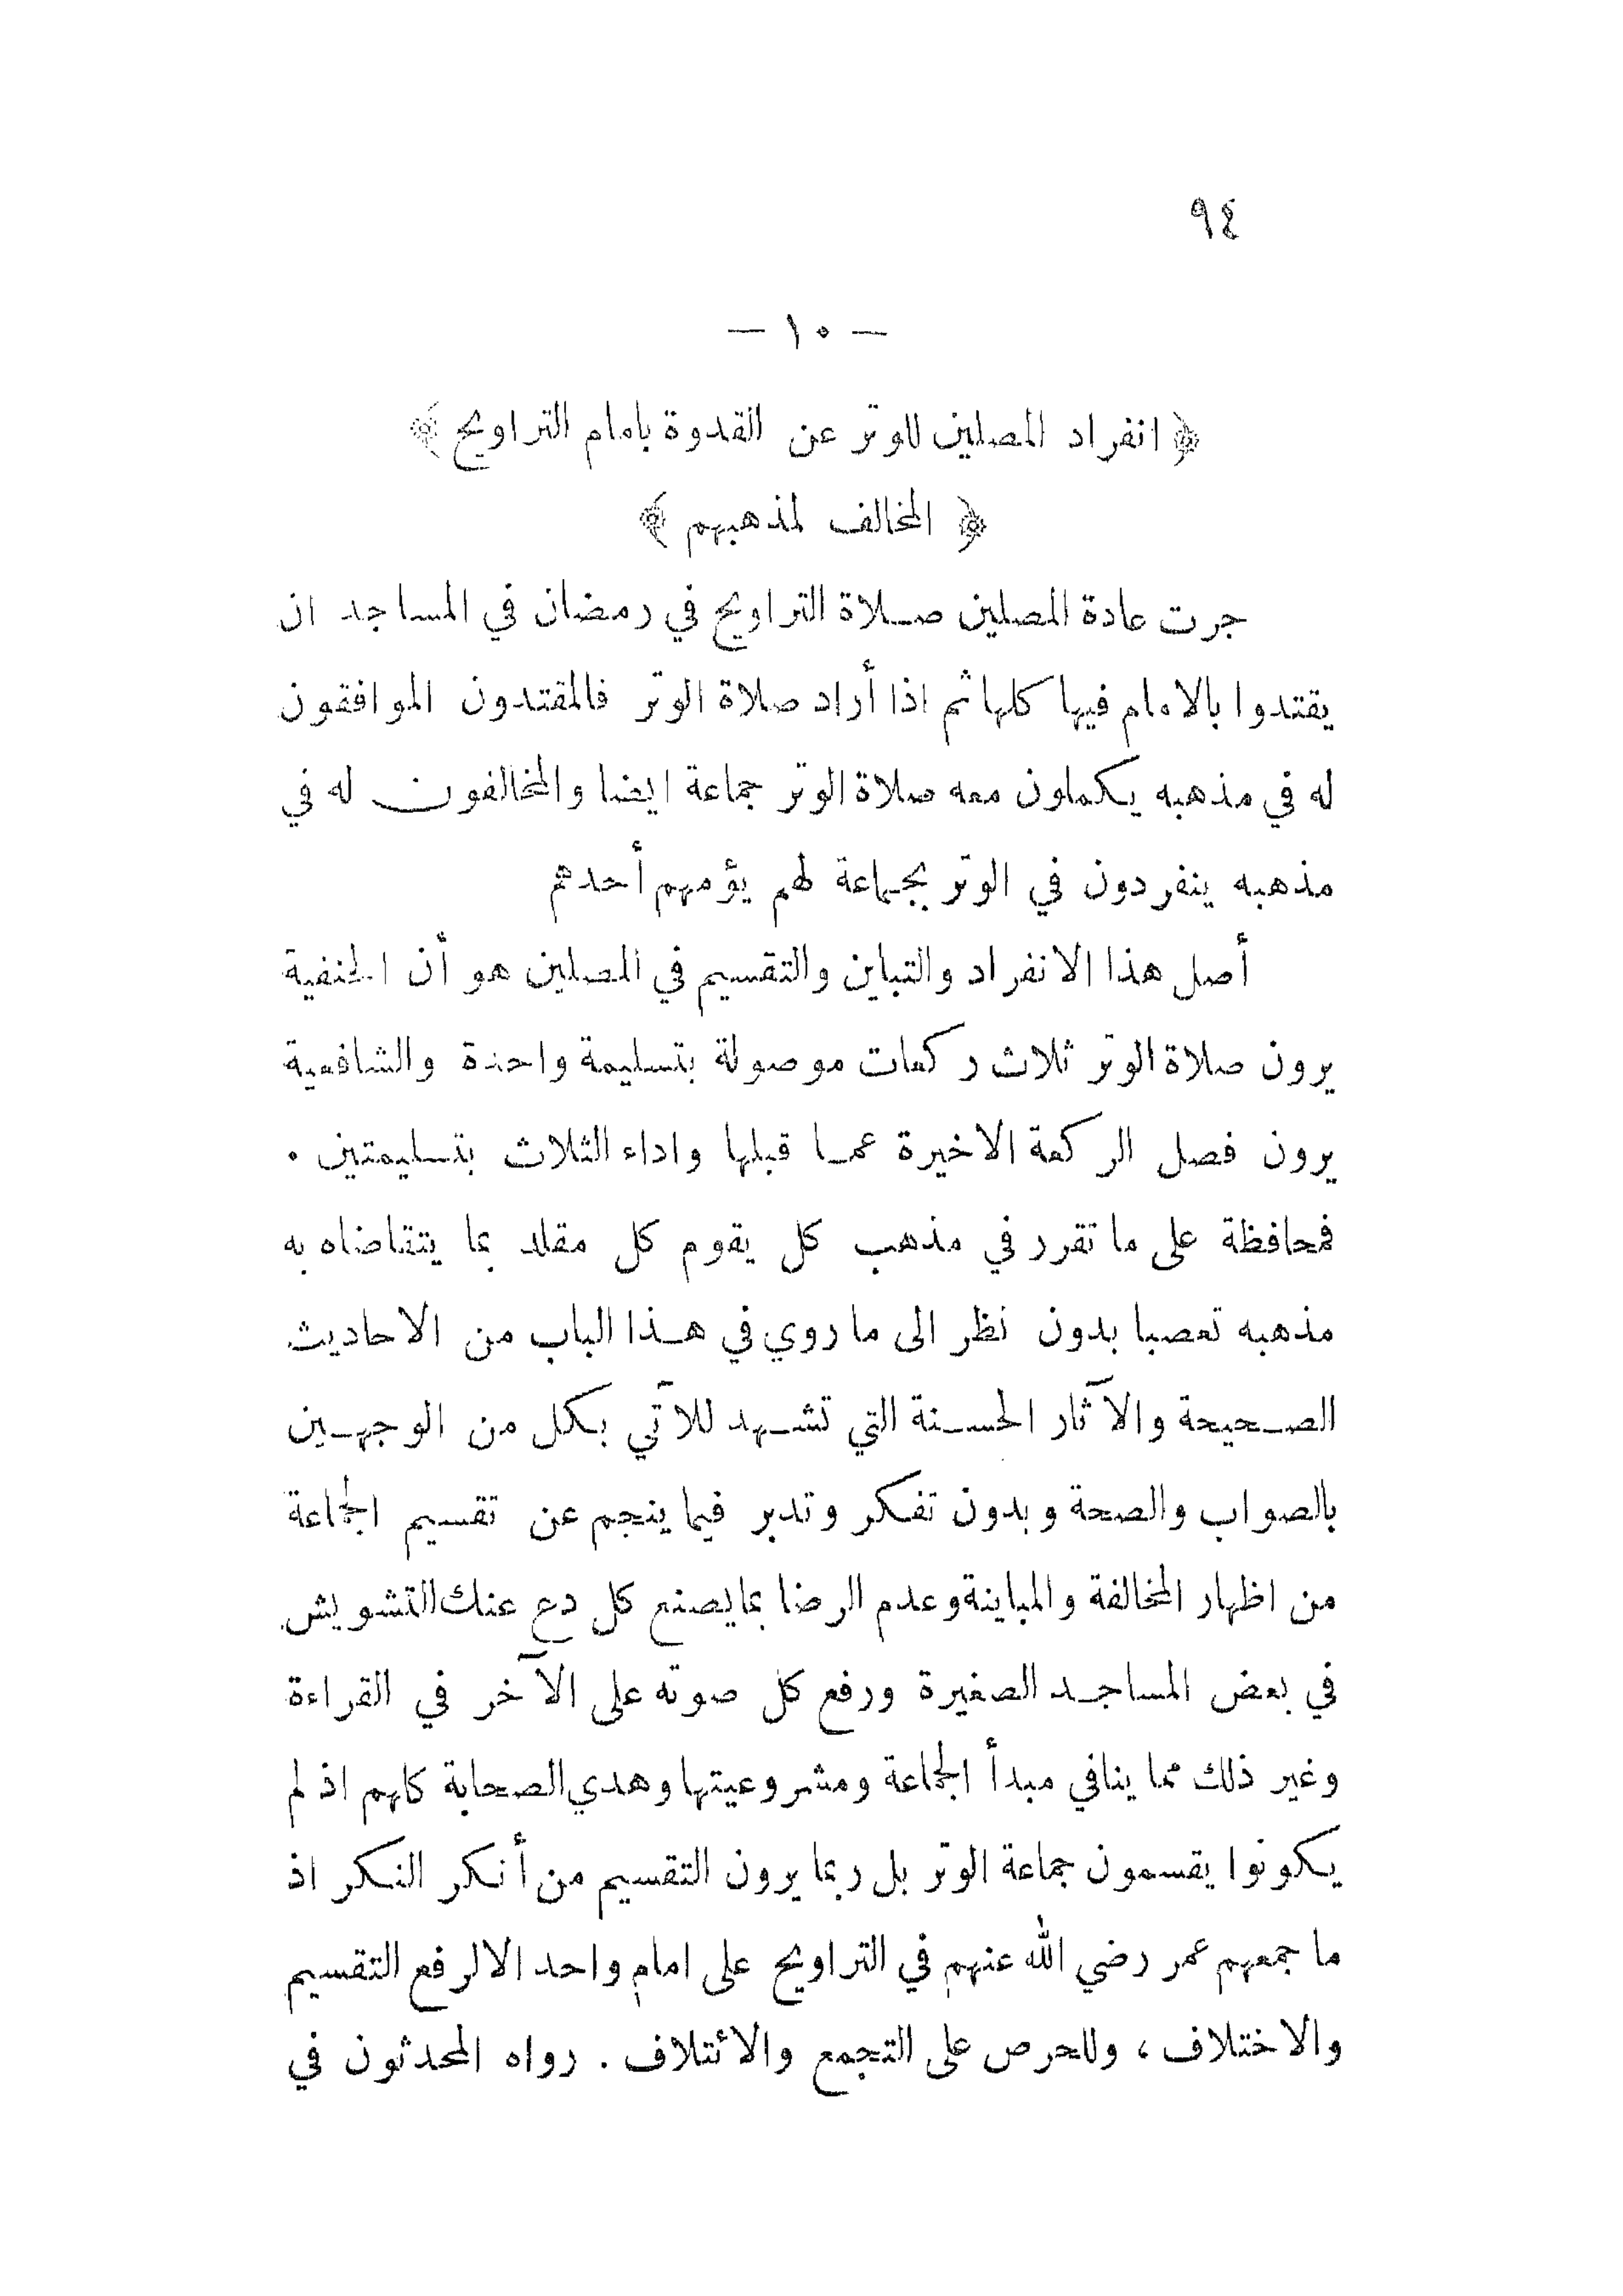 ٩٤
— ١٠ —
﴿ انفراد المصلين للوتر عن القدوة بامام التراويح ﴾
﴿ المخالف لمذهبهم ﴾
جرت عادة المصلين صلاة التراويح في رمضان في المساجد ان
يقتدوا بالامام فيها كلها ثم اذا أراد صلاة الوتر فالمقتدون الموافقون
له في مذهبه يكملون معه صلاة الوتر جماعة ايضا والمخالفون له في
مذهبه ينفردون في الوتر بجماعة لهم يؤمهم أحدهم
أصل هذا الانفراد والتباين والتقسيم في المصلين هو أن الحنفية
يرون صلاة الوتر ثلاث ركعات موصولة بتسليمة واحدة والشافعية
يرون فصل الركعة الاخيرة عما قبلها واداء الثلاث بتسليمتين .
فمحافظة على ما تقرر في مذهب كل يقوم كل مقلد بما يتقاضاه به
مذهبه تعصبا بدون نظر الى ما روي في هذا الباب من الاحاديث
الصحيحة والآثار الحسنة التي تشهد للآتي بكل من الوجهين
بالصواب والصحة وبدون تفكر وتدبر فيما ينجم عن تقسيم الجماعة
من اظهار المخالفة والمباينة وعدم الرضا بما يصنع كل دع عنك التشويش
في بعض المساجد الصغيرة ورفع كل صوته على الآخر في القراءة
وغير ذلك مما ينافي مبدأ الجماعة ومشروعيتها وهدي الصحابة كلهم اذ لم
يكونوا يقسمون جماعة الوتر بل ربما يرون التقسيم من أنكر النكر اذ
ما جمعهم عمر رضي الله عنهم في التراويح على امام واحد الا لرفع التقسيم
والاختلاف ، وللحرص على التجمع والائتلاف . رواه المحدثون في